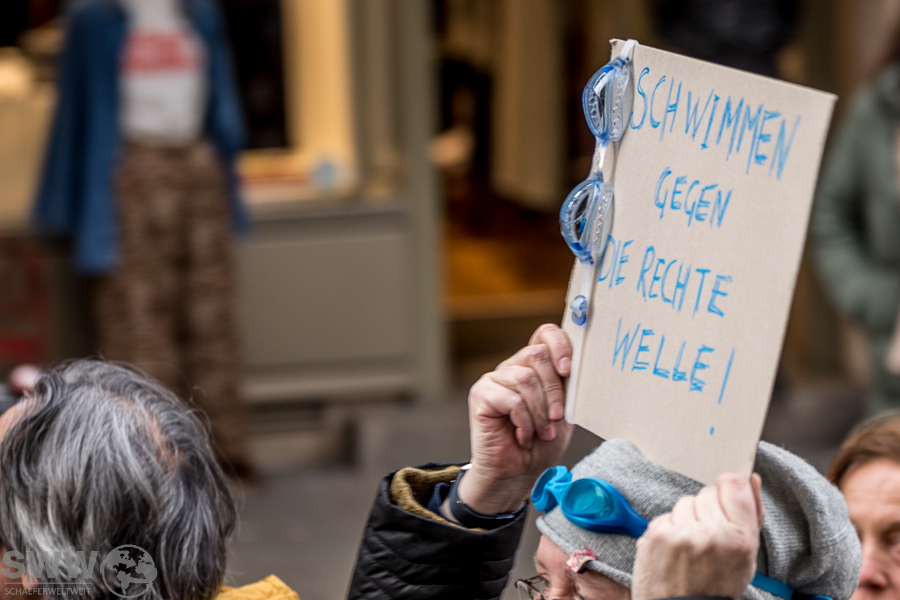 SCHWIMMEN
GEGEN
DIE RECHTE
WELLE!
SWW
SCHAEFERWELTWEIT